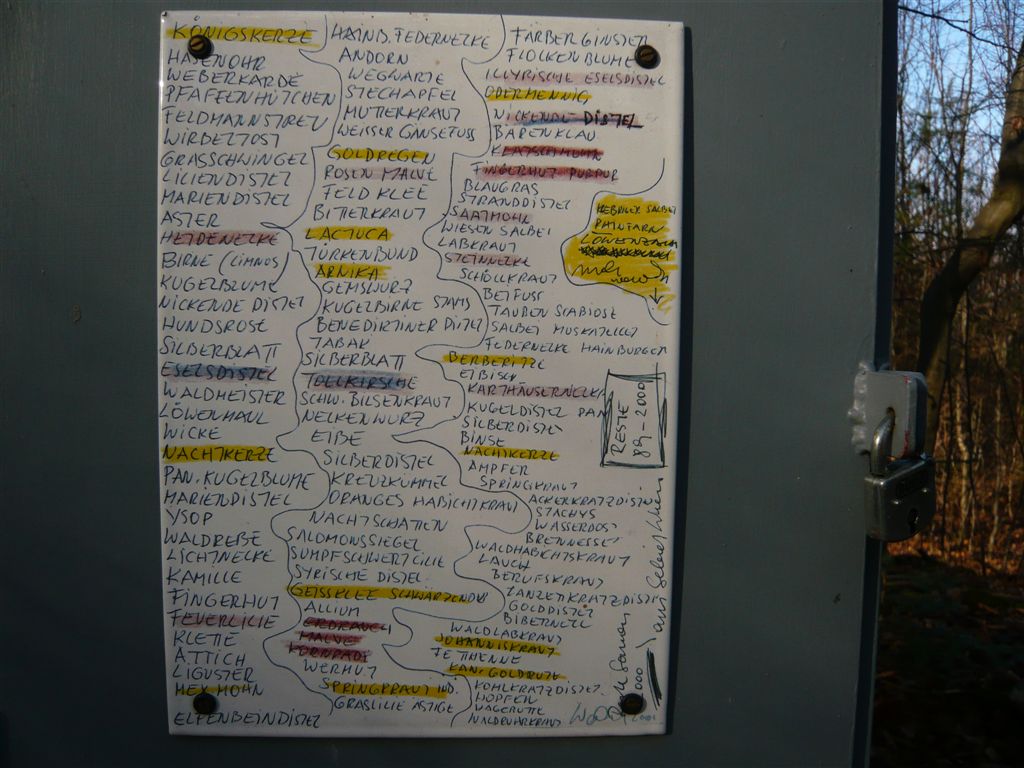 KÖNIGSKERZE
HASENOHR
WEBERKARDE
PFAFFENHÜTCHEN
FELDMANNSTREU
WIRBELTOST
GRASSCHWINGEL
LILIENDISTEL
MARIENDISTEL
ASTER
HEIDENELKE
BIRNE (LIMNOS)
KUGELBLUME
NICKENDE DISTEL
HUNDSROSE
SILBERBLATT
ESELSDISTEL
WALDMEISTER
LÖWENMAUL
WICKE
NACHTKERZE
PAN. KUGELBLUME
MARIENDISTEL
YSOP
WALDREBE
LICHTNELKE
KAMILLE
FINGERHUT
FEUERLILIE
KLETTE
ATTICH
LIGUSTER
MEX MOHN
ELFENBEINDISTEL
HAINB. FEDERNELKE
ANDORN
WEGWARTE
STECHAPFEL
MUTTERKRAUT
WEISSER GÄNSEFUSS
GOLDREGEN
ROSEN MALVE
FELD KLEE
BITTERKRAUT
LACTUCA
TÜRKENBUND
ARNIKA
GEMSWURZ
KUGELBIRNE STAMS
BENEDIKTINER DISTEL
TABAK
SILBERBLATT
TOLLKIRSCHE
SCHW. BILSENKRAUT
NELKENWURZ
EIBE
SILBERDISTEL
KREUZKÜMMEL
ORANGES HABICHTKRAUT
NACHTSCHATTEN
SALOMONSSIEGEL
SUMPFSCHWERTLILIE
SYRISCHE DISTEL
GEISSKLEE SCHWÄRZENDER
ALLIUM
ERDRAUCH
MALVE
KORNRADE
WERMUT
SPRINGKRAUT IND.
GRASLILIE ÄSTIGE
FÄRBER GINSTER
FLOCKENBLUME
ILLYRISCHE ESELSDISTEL
ODERMENNIG
NICKENDE DISTEL
BÄRENKLAU
KLATSCHMOHN
FINGERHUT PURPUR
BLAUGRAS
STRANDDISTEL
SAATMOHN
WIESEN SALBEI
LABKRAUT
STEINNELKE
SCHÖLLKRAUT
BEIFUSS
TAUBEN SCABIOSE
SALBEI MUSKATELLER
FEDERNELKE HAINBURGER
BERBERITZE
EIBISCH
KARTHÄUSERNELKE
KUGELDISTEL PAN
SILBERDISTEL
BINSE
NACHTKERZE
AMPFER
SPRINGKRAUT
ACKERKRATZDISTEL
STACHYS
WASSERDOST
BRENNESSEL
WALDHABICHTSKRAUT
LAUCH
BERUFSKRAUT
LANZENKRATZDISTEL
GOLDDISTEL
BIBERNELLE
WALDLABKRAUT
JOHANNISKRAUT
FETTHENNE
KAN. GOLDRUTE
KOHLKRATZDISTEL
HOPFEN
WALDRUHRKRAUT
SALBEI
RAINFARN
LÖWENZAHN
RESTE
89-2000